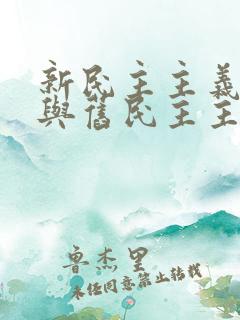 新民主主義
與舊民主主
魯杰里
未经同意禁止转载